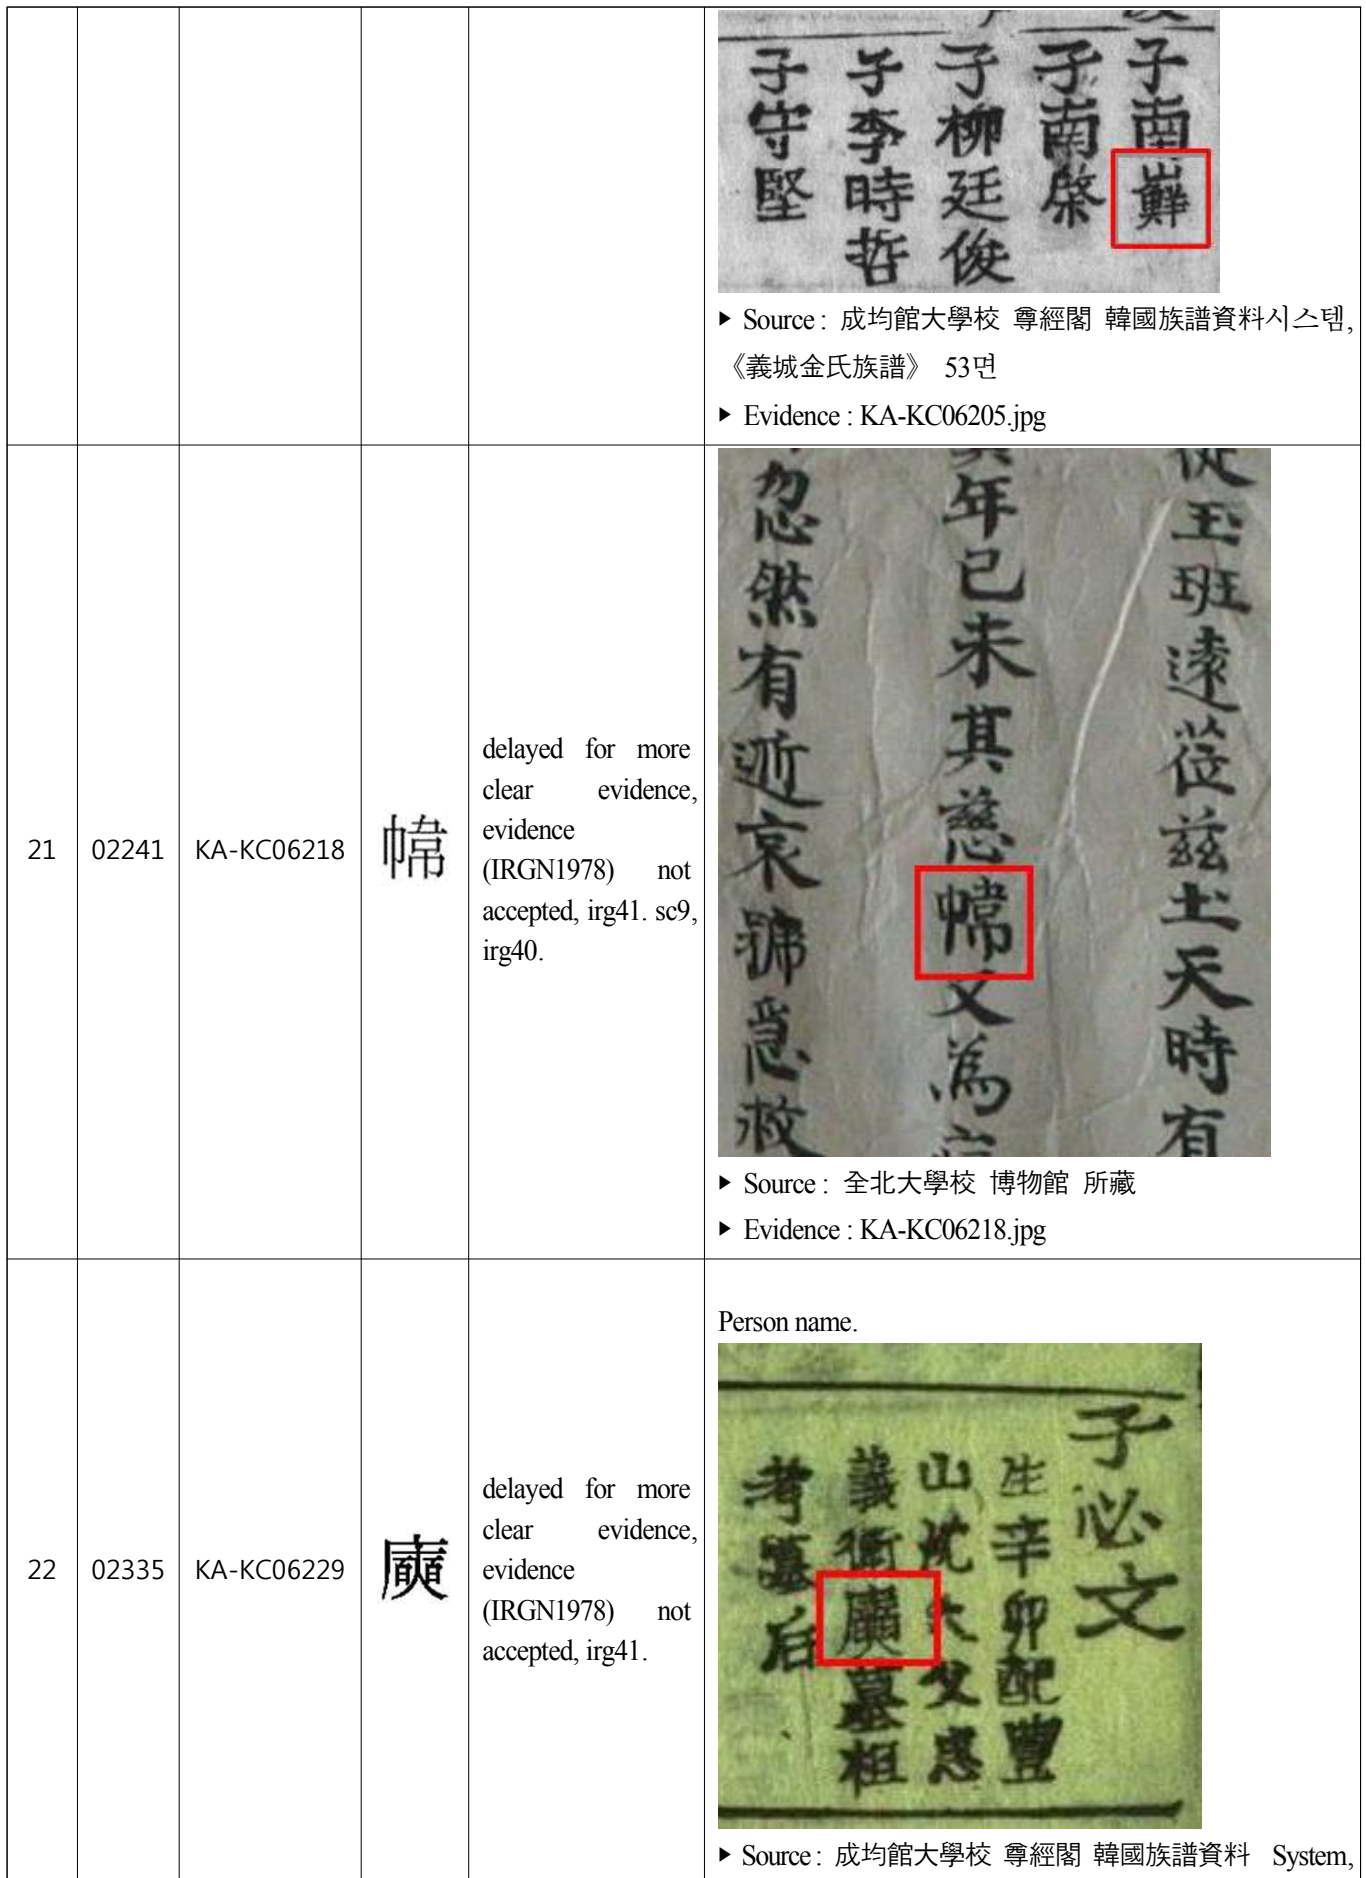 子南
子南棨
子柳廷俊
子李時哲
子守堅
▶ Source : 成均館大學校 尊經閣 韓國族譜資料시스템,
《義城金氏族譜》 53면
▶ Evidence : KA-KC06205.jpg
21
02241
KA-KC06218
delayed for more
clear evidence,
evidence
(IRGN1978) not
accepted, irg41. sc9,
irg40.
從玉班遠莅茲土天時有
年己未其慈 又為
忽然有逝哀號急救
▶ Source : 全北大學校 博物館 所藏
▶ Evidence : KA-KC06218.jpg
22
02335
KA-KC06229
delayed for more
clear evidence,
evidence
(IRGN1978) not
accepted, irg41.
Person name.
子必文
生辛卯配豐
山沈 父忠
義衛 墓祖
考墓后
▶ Source : 成均館大學校 尊經閣 韓國族譜資料 System,